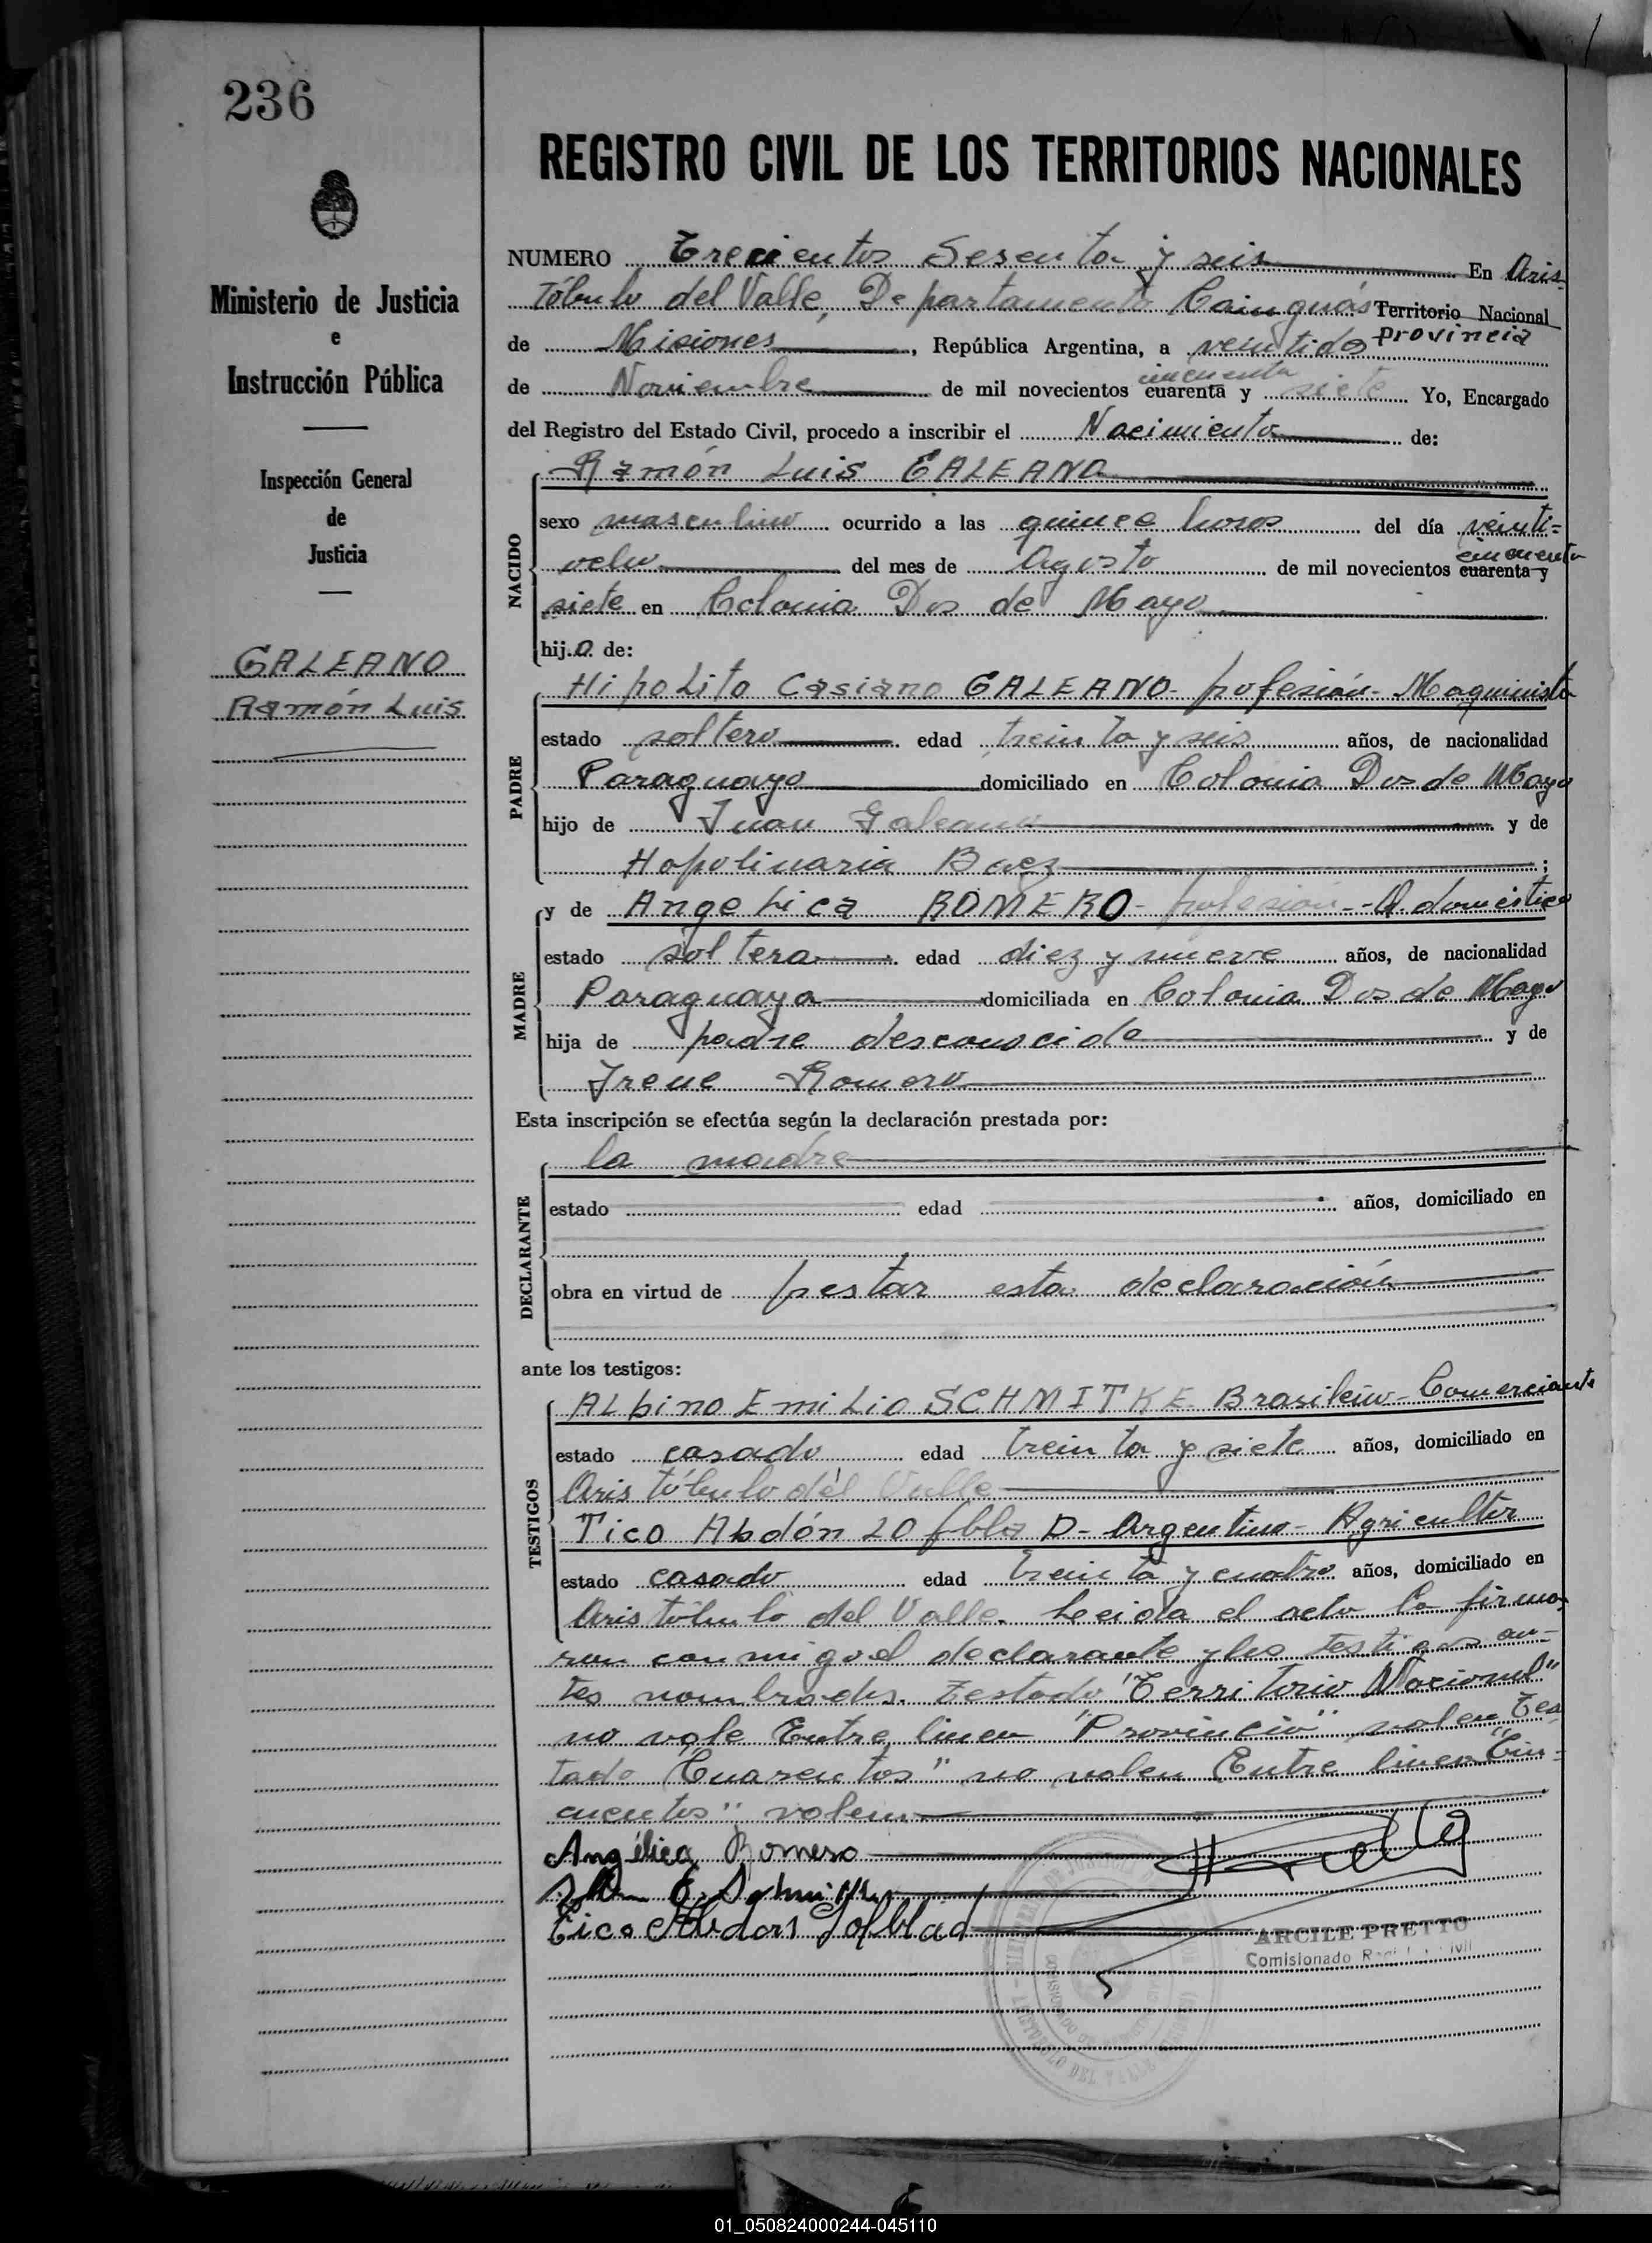 236
Ministerio de Justicia
e
Instrucción Pública
Inspección General
de
Justicia
GALEANO
Ramón Luis
REGISTRO CIVIL DE LOS TERRITORIOS NACIONALES
NUMERO Trecientos Sesenta y seis En Aris-
tóbulo del Valle, Departamento Cainguás Territorio Nacional
provincia
de Misiones, República Argentina, a veintidos
cincuenta
de Noviembre de mil novecientos cuarenta y siete Yo, Encargado
del Registro del Estado Civil, procedo a inscribir el Nacimiento de:
Ramón Luis GALEANO
NACIDO
sexo masculino ocurrido a las quince horas del día veinti=
cincuenta
ocho del mes de Agosto de mil novecientos cuarenta y
siete en Colonia Dos de Mayo
hijo de:
PADRE
HipoLito Casiano GALEANO- profesión- Maquinista
estado soltero edad treinta y seis años, de nacionalidad
Paraguayo domiciliado en Colonia Dos de Mayo
hijo de Juan Galeano y de
Hopolinaria Baez;
MADRE
y de AngeLica ROMERO- profesión--Q. domestica
estado soltera edad diez y nueve años, de nacionalidad
Paraguaya domiciliada en Colonia Dos de Mayo
hija de padre desconocido y de
Irene Romero
Esta inscripción se efectúa según la declaración prestada por:
DECLARANTE
la madre
estado edad años, domiciliado en
obra en virtud de prestar esta declaración
ante los testigos:
TESTIGOS
ALbino EmiLio SCHMITKE. Brasilero-Comerciante
estado casado edad treinta y siete años, domiciliado en
Aristóbulo del Valle
Tico Abdón D- Argentino- Agricultor
estado casado edad treinta y cuatro años, domiciliado en
Aristóbulo del Valle. Leida el acta la firma-
ron conmigo el declarante y los testigos an-
tes nombrados. Testado "Territorio Nacional"
no vale Entre linea "Provincia" valen Tes
tado "Cuarentos" no valen Entre linea "Cin-
cuentos" valen
Angélica Romero
Tico Abdon Lofblad
ARCILE PRETTO
Comisionado
01_050824000244-045110